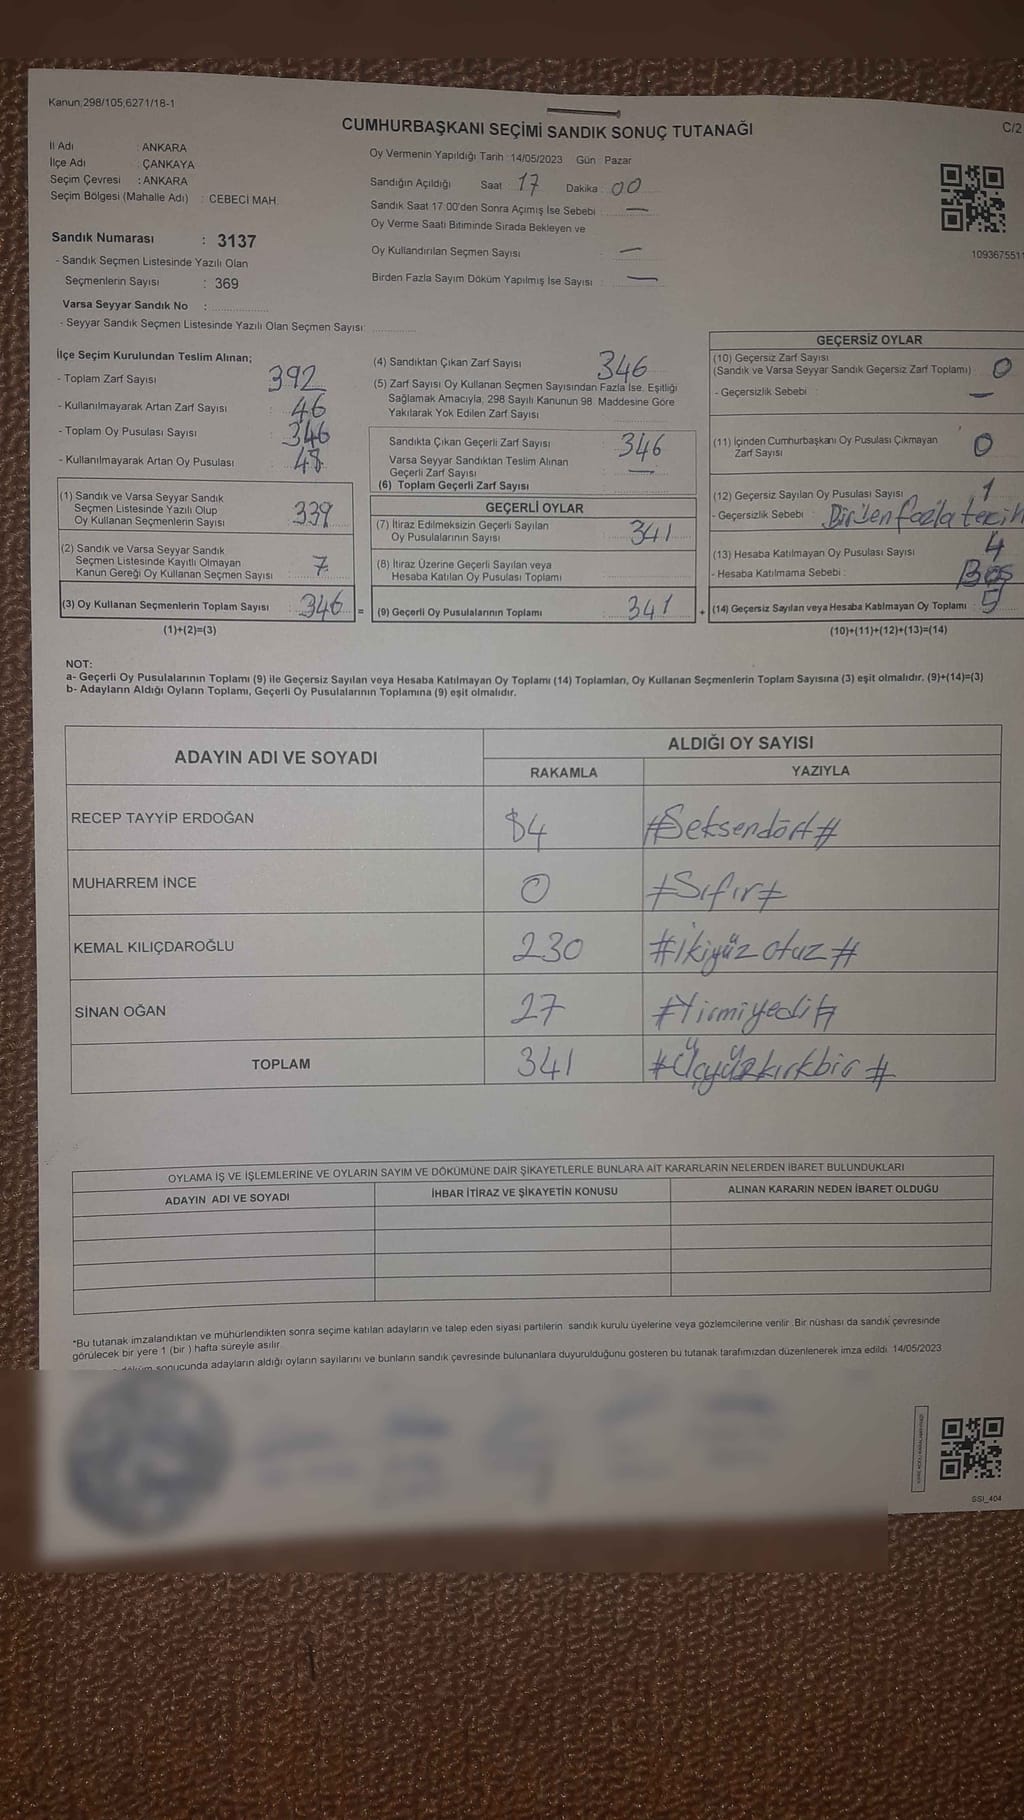 Kanun;298/105,6271/18-1
CUMHURBAŞKANI SEÇİMİ SANDIK SONUÇ TUTANAĞI
C/2
İl Adı : ANKARA
İlçe Adı : ÇANKAYA
Seçim Çevresi : ANKARA
Seçim Bölgesi (Mahalle Adı) : CEBECİ MAH.
Oy Vermenin Yapıldığı Tarih : 14/05/2023 Gün : Pazar
Sandığın Açıldığı Saat : 17 Dakika : 00
Sandık Saat 17:00'den Sonra Açımış İse Sebebi : —
Oy Verme Saati Bitiminde Sırada Bekleyen ve
Oy Kullandırılan Seçmen Sayısı : —
Birden Fazla Sayım Döküm Yapılmış İse Sayısı : —
1093675511
Sandık Numarası : 3137
- Sandık Seçmen Listesinde Yazılı Olan
Seçmenlerin Sayısı : 369
Varsa Seyyar Sandık No :
- Seyyar Sandık Seçmen Listesinde Yazılı Olan Seçmen Sayısı:
İlçe Seçim Kurulundan Teslim Alınan;
- Toplam Zarf Sayısı : 392
- Kullanılmayarak Artan Zarf Sayısı : 46
- Toplam Oy Pusulası Sayısı : 346
- Kullanılmayarak Artan Oy Pusulası :
(1) Sandık ve Varsa Seyyar Sandık
Seçmen Listesinde Yazılı Olup
Oy Kullanan Seçmenlerin Sayısı : 339
(2) Sandık ve Varsa Seyyar Sandık
Seçmen Listesinde Kayıtlı Olmayan
Kanun Gereği Oy Kullanan Seçmen Sayısı : 7
(3) Oy Kullanan Seçmenlerin Toplam Sayısı : 346 =
(1)+(2)=(3)
(4) Sandıktan Çıkan Zarf Sayısı 346
(5) Zarf Sayısı Oy Kullanan Seçmen Sayısından Fazla İse, Eşitliği
Sağlamak Amacıyla, 298 Sayılı Kanunun 98. Maddesine Göre
Yakılarak Yok Edilen Zarf Sayısı
Sandıkta Çıkan Geçerli Zarf Sayısı : 346
Varsa Seyyar Sandıktan Teslim Alınan
Geçerli Zarf Sayısı : —
(6) Toplam Geçerli Zarf Sayısı
GEÇERLİ OYLAR
(7) İtiraz Edilmeksizin Geçerli Sayılan
Oy Pusulalarının Sayısı : 341
(8) İtiraz Üzerine Geçerli Sayılan veya
Hesaba Katılan Oy Pusulası Toplamı :
(9) Geçerli Oy Pusulalarının Toplamı : 341 +
GEÇERSİZ OYLAR
(10) Geçersiz Zarf Sayısı
(Sandık ve Varsa Seyyar Sandık Geçersiz Zarf Toplamı) : 0
- Geçersizlik Sebebi : —
(11) İçinden Cumhurbaşkanı Oy Pusulası Çıkmayan
Zarf Sayısı 0
(12) Geçersiz Sayılan Oy Pusulası Sayısı : 1
- Geçersizlik Sebebi : Birden fazla tercih
(13) Hesaba Katılmayan Oy Pusulası Sayısı : 4
- Hesaba Katılmama Sebebi : Boş
(14) Geçersiz Sayılan veya Hesaba Katılmayan Oy Toplamı : 5
(10)+(11)+(12)+(13)=(14)
NOT:
a- Geçerli Oy Pusulalarının Toplamı (9) ile Geçersiz Sayılan veya Hesaba Katılmayan Oy Toplamı (14) Toplamları, Oy Kullanan Seçmenlerin Toplam Sayısına (3) eşit olmalıdır. (9)+(14)=(3)
b- Adayların Aldığı Oyların Toplamı, Geçerli Oy Pusulalarının Toplamına (9) eşit olmalıdır.
ADAYIN ADI VE SOYADI
ALDIĞI OY SAYISI
RAKAMLA YAZIYLA
RECEP TAYYİP ERDOĞAN 84 #Seksendört#
MUHARREM İNCE 0 #Sıfır#
KEMAL KILIÇDAROĞLU 230 #İkiyüz otuz#
SİNAN OĞAN 27 #Yirmiyedi#
TOPLAM 341 #Üçyüzkırkbir#
OYLAMA İŞ VE İŞLEMLERİNE VE OYLARIN SAYIM VE DÖKÜMÜNE DAİR ŞİKAYETLERLE BUNLARA AİT KARARLARIN NELERDEN İBARET BULUNDUKLARI
ADAYIN ADI VE SOYADI İHBAR İTİRAZ VE ŞİKAYETİN KONUSU ALINAN KARARIN NEDEN İBARET OLDUĞU
*Bu tutanak imzalandıktan ve mühürlendikten sonra seçime katılan adayların ve talep eden siyasi partilerin sandık kurulu üyelerine veya gözlemcilerine verilir. Bir nüshası da sandık çevresinde
görülecek bir yere 1 (bir ) hafta süreyle asılır.
döküm sonucunda adayların aldığı oyların sayılarını ve bunların sandık çevresinde bulunanlara duyurulduğunu gösteren bu tutanak tarafımızdan düzenlenerek imza edildi. 14/05/2023
SSI_404